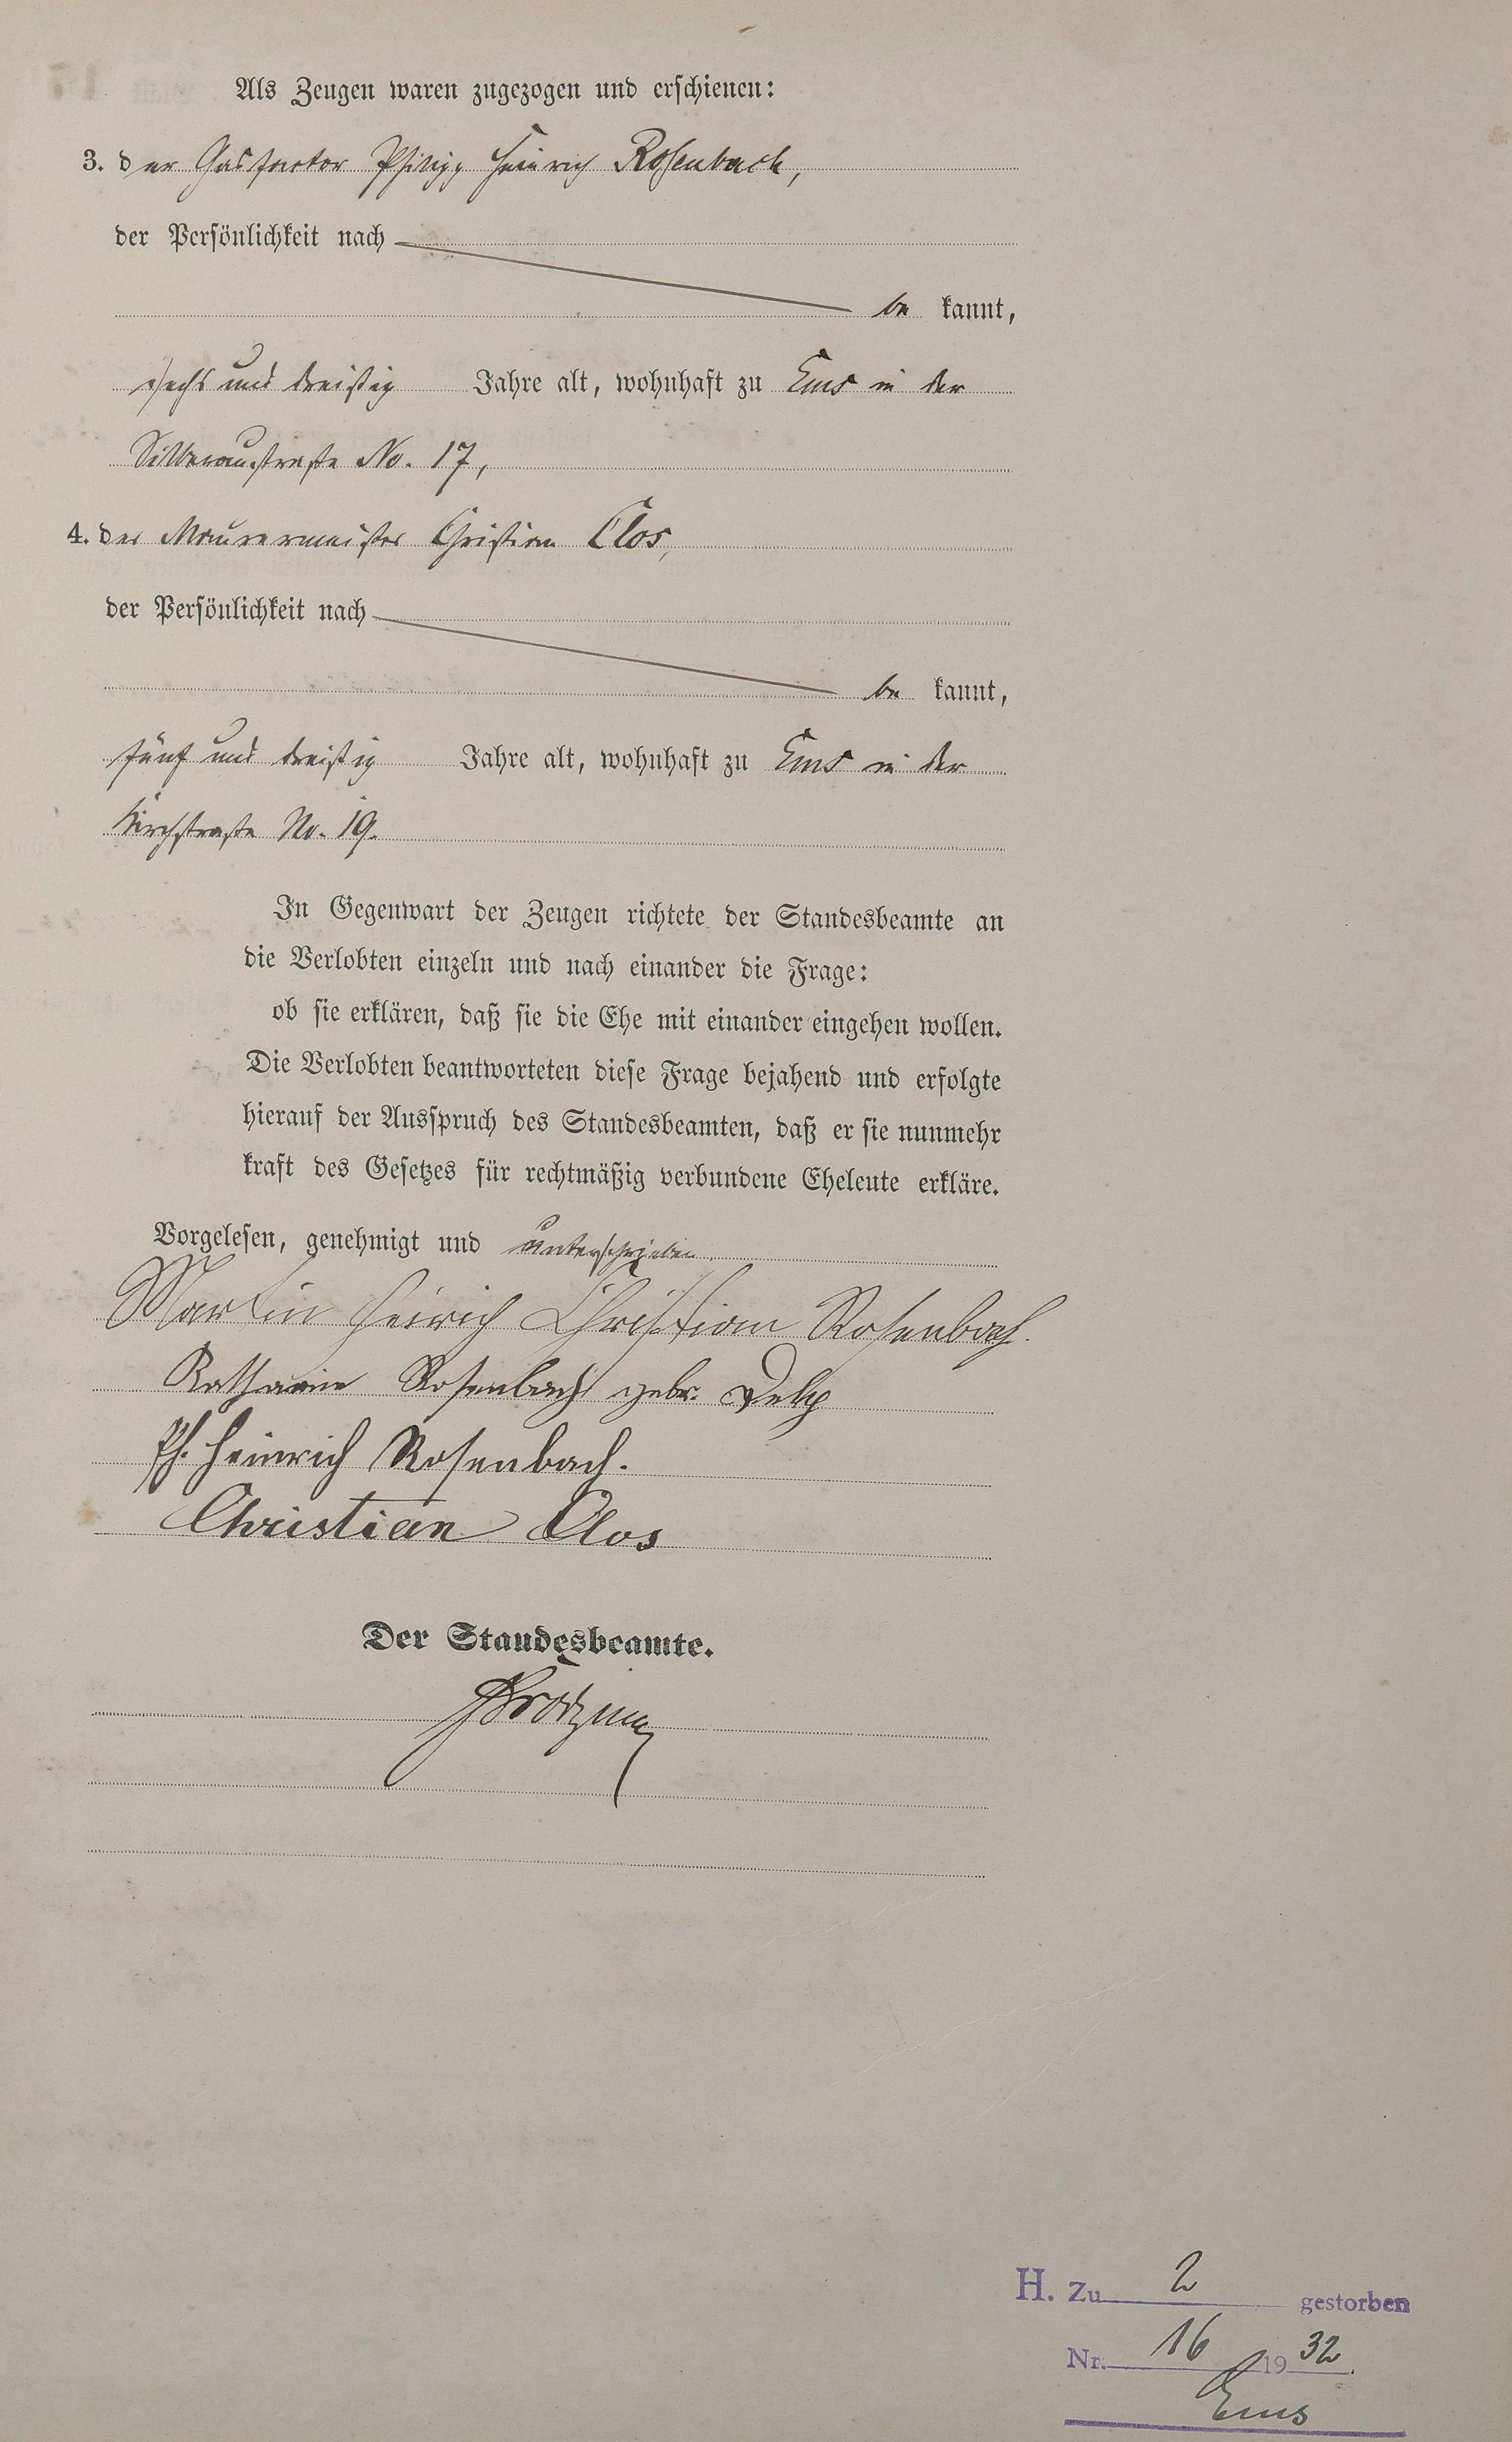 Als Zeugen waren zugezogen und erschienen:
3. der Philipp Heinrich Rosenbach,
der Persönlichkeit nach
be kannt,
sechs und dreißig Jahre alt, wohnhaft zu Ems in der
Silberaustraße No. 17,
4. der Maurermeister Christian Clos,
der Persönlichkeit nach
be kannt,
fünf und dreißig Jahre alt, wohnhaft zu Ems in der
Kirchstraße No. 19.
In Gegenwart der Zeugen richtete der Standesbeamte an
die Verlobten einzeln und nach einander die Frage:
ob sie erklären, daß sie die Ehe mit einander eingehen wollen.
Die Verlobten beantworteten diese Frage bejahend und erfolgte
hierauf der Ausspruch des Standesbeamten, daß er sie nunmehr
kraft des Gesetzes für rechtmäßig verbundene Eheleute erkläre.
Vorgelesen, genehmigt und unterschrieben.
Martin Heirich Christian Rosenbach.
Katharine Rosenbach gebr. Delp
Ph. Heinrich Rosenbach.
Christian Clos
Der Standesbeamte.
H. Zu 2 gestorben
Nr. 16 1932.
Ems